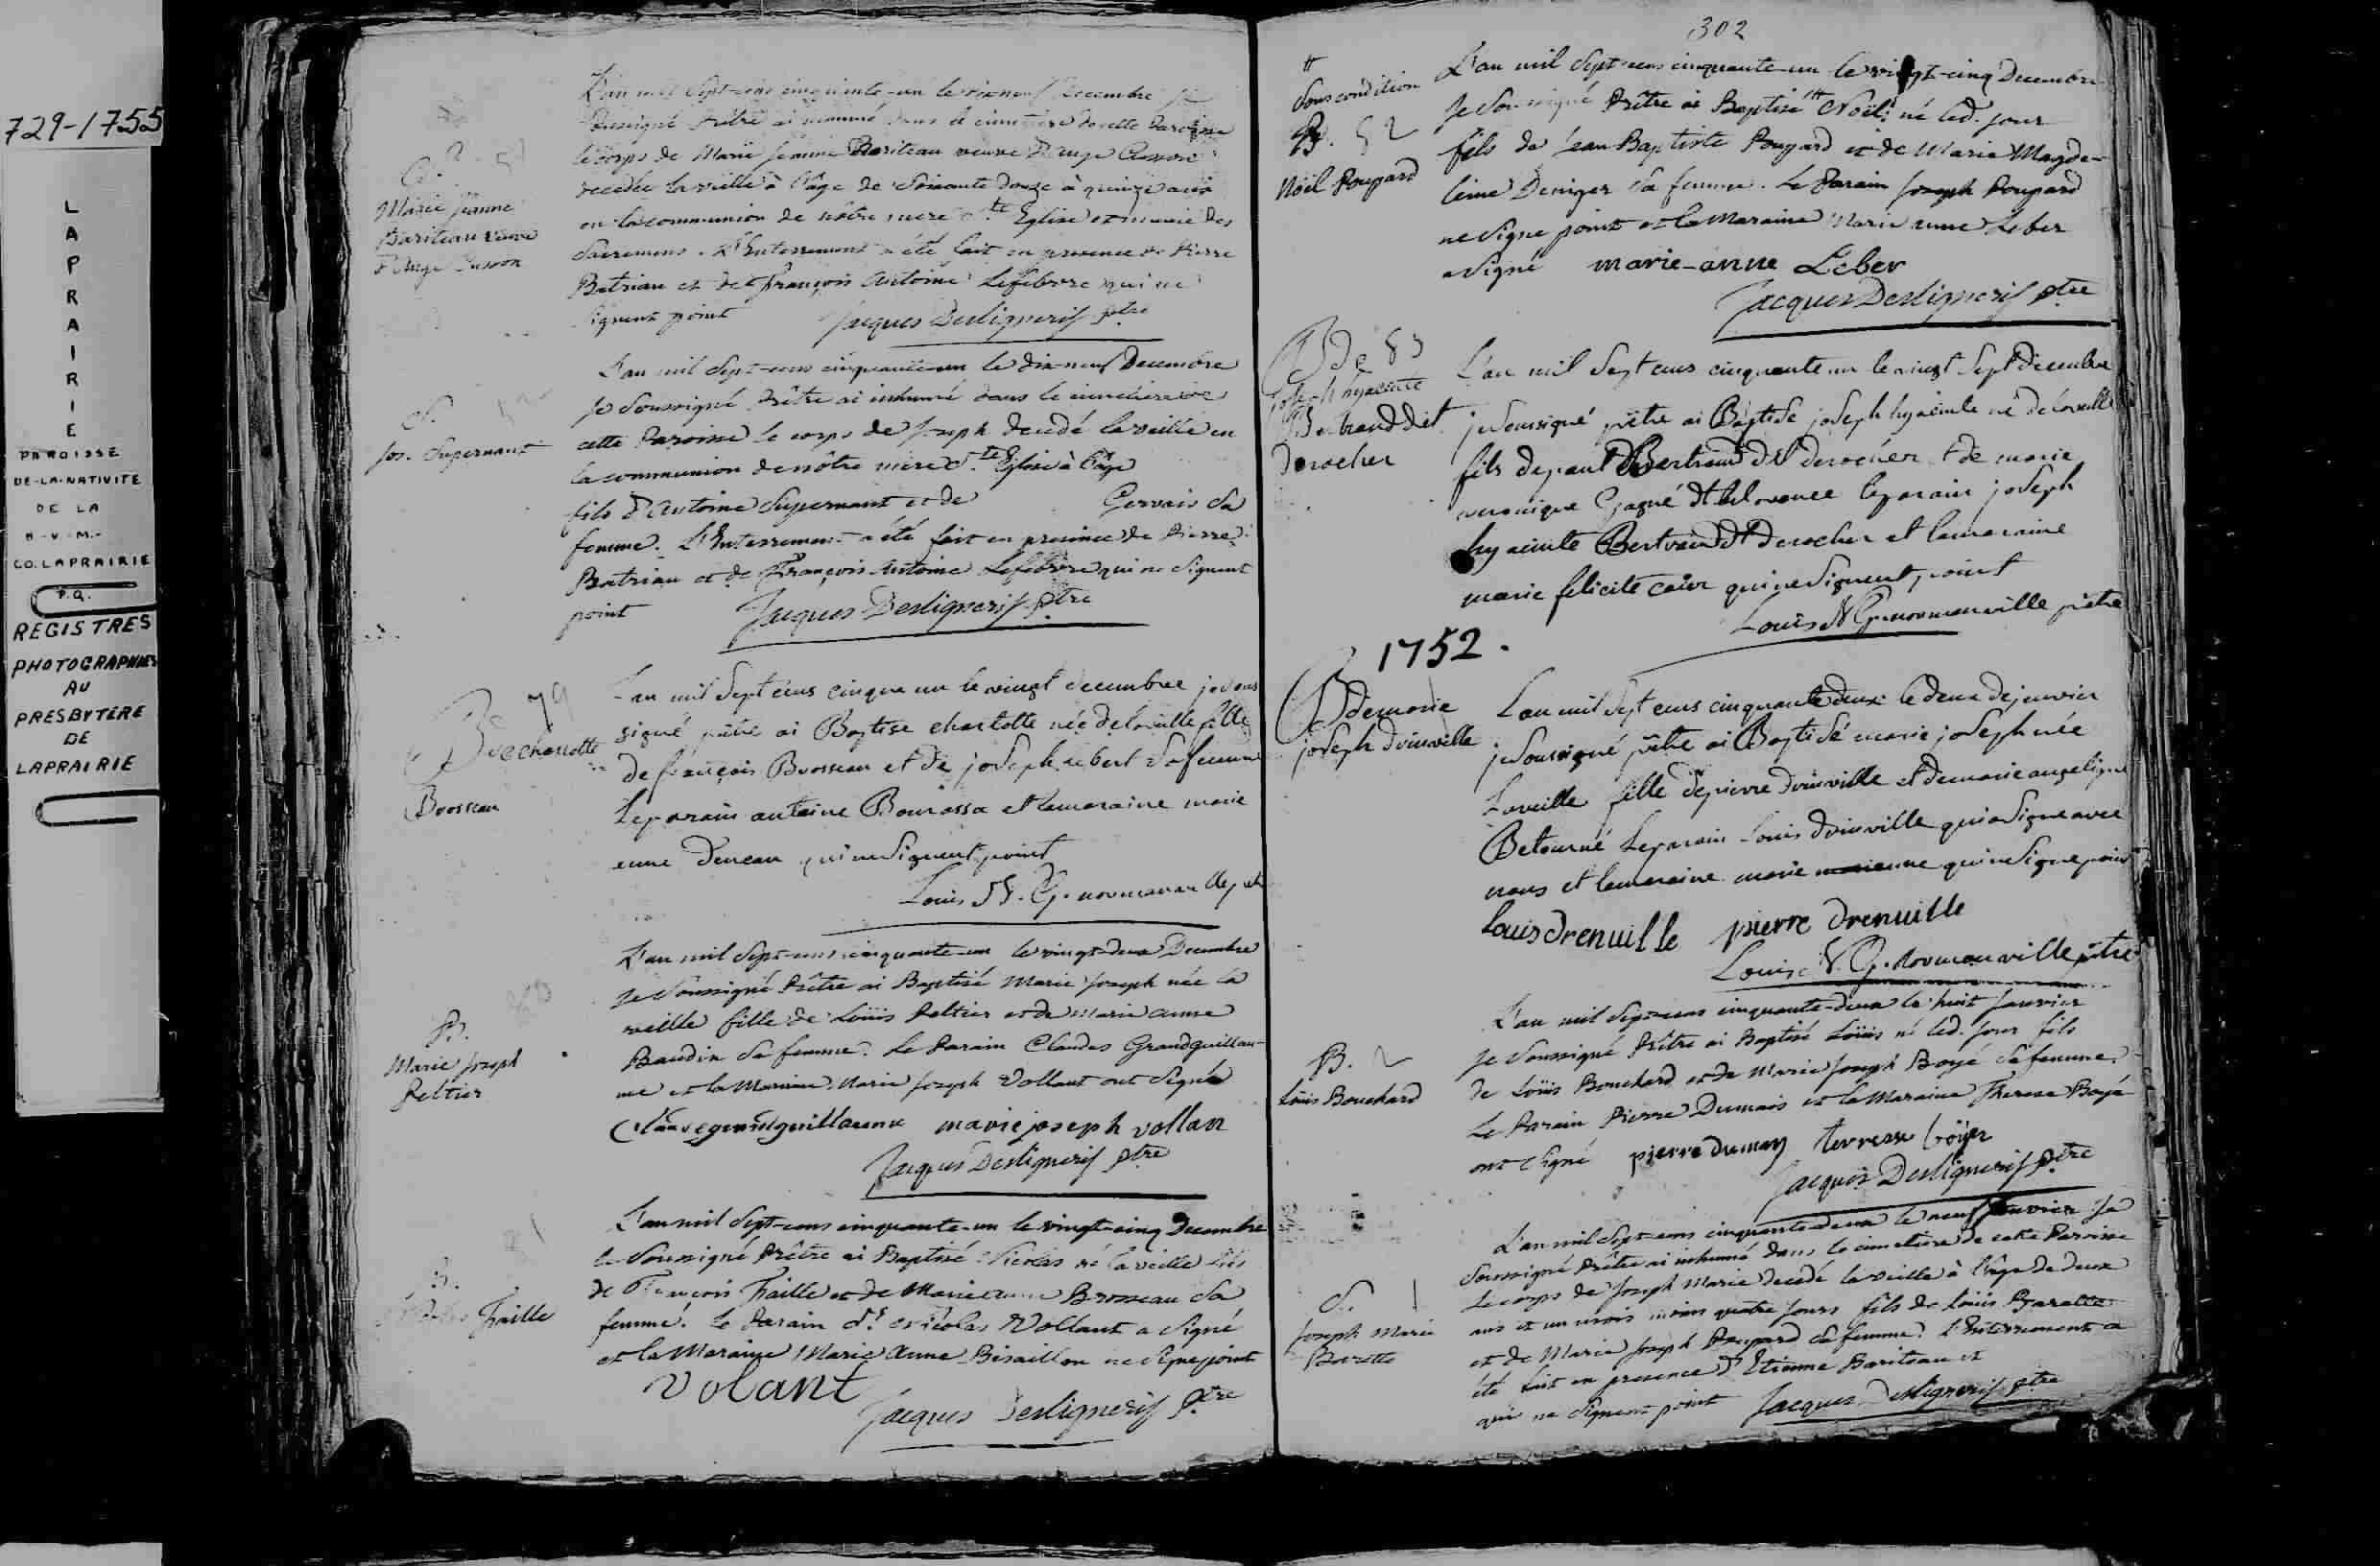 729-1755
LAPRAIRIE
PAROISSE
DE-LA-NATIVITE
DE LA
B-V-M-
CO. LAPRAIRIE
P.Q.
REGISTRES
PHOTOGRAPHIES
AU
PRESBYTERE
DE
LAPRAIRIE
L'an mil Sept-cens cinquante-un le dixneuf Decembre je
soussigné Prêtre ai inhumé dans le cimetiere de cette Paroisse
le corps de Marie Jeanne Bariteau veuve
decedée la veille à l'âge de Soixante douze à quinze ans
en la communion de nôtre mere Ste Eglise et munie des
Sacremens. L'Enterrement a été fait en presence de Pierre
Batriau et de François Antoine Lefebvre qui ne
signent point Jacques Desligneris ptre
Marie Jeanne
Bariteau veuve
L'an mil Sept-cens cinquante-un le dix-neuf Decembre
Je Soussigné Prêtre ai inhumé dans le cimetiere de
cette Paroisse le corps de Joseph decedé la veille en
la communion de nôtre mere Ste Eglise à l'âge
fils d'Antoine Supernant et de Gervais Sa
femme. L'Enterrement a été fait en presence de Pierre
Batriau et de François Antoine Lefebvre qui ne Signent
point Jacques Desligneris Ptre
S.
Jos. Supernant
L'an mil Sept cens cinque un le vingt decembre je sous
signé prêtre ai Baptise charlotte née de la veille fille
de françois Brosseau et de joseph hebert Sa femme
Le parain antoine Bourassa et la maraine marie
enne deneau qui ne Signent point
Louis N. G. normanville ptr
B de charlotte
Brosseau
79
L'an mil Sept-cens cinquante-un le vingt-deux Decembre
Je Soussigné Prêtre ai Baptisé Marie Joseph née la
veille fille de Loüis Peltier et de Marie anne
Baudin Sa femme. Le Parain Claudes Grandguillau-
me et la Maraine Marie Joseph Vollant ont Signés
marie joseph vollan
Jacques Desligneris Ptre
B.
Marie Joseph
Peltier
L'an mil Sept-cens cinquante-un le vingt-cinq Decembre
Je Soussigné Prêtre ai Baptisé Nicolas né la veille fils
de François Traille et de Marie anne Brosseau Sa
femme. Le Parain Sr Nicolas Vollant a Signé
et la Maraine Marie Anne Bisaillon ne Signe point
Volant
Jacques Desligneris Ptre
81
B.
Nicolas Traille
302
L'an mil Sept-cens cinquante-un le vingt-cinq Decembre
Je Soussigné Prêtre ai Baptisé # Noël né led. jour
fils de Jean Baptiste Poupard et de Marie Magde-
leine Deniger Sa femme. Le Parain Joseph Poupard
ne Signe point et la Maraine Marie anne Leber
a Signé marie-anne Leber
Jacques Desligneris ptre
#
Sous condition
B. 82
Noël Poupard
L'an mil Sept cens cinquante un le vingt Sept decembre
je Soussigné prêtre ai Baptise joseph hyacinte né de la veille
fils de paul Bertrand dt derocher et de marie
veronique Gagné dt bellavance le parain joseph
hyacinte Bertrand dt derocher et la maraine
marie felicité caier qui ne Signent point
Louis N G. normanville prêtre
B de 83
joseph hyacinte
Bertrand dit
Derocher
1752.
L'an mil Sept cens cinquante deux le deux de janvier
je Soussigné prêtre ai Baptisé marie joseph née
La veille fille de pierre drinville et de marie angelique
Betourné Le parain Louis drinville qui a Signe avec
nous et la maraine marie qui ne Signe point
Louis drenuille pierre drenuille
Louis N. G. normanville ptre
B de marie
joseph drinville
L'an mil Sept-cens cinquante-deux le huit Janvier
Je Soussigné Prêtre ai Baptisé Loüis né led. jour fils
de Loüis Bouchard et de Marie Joseph Boyé Sa femme.
Le Parain Pierre Dumais et la Maraine Therese Boyé
ont Signé pierre dumay terresse böyer
Jacques Desligneris Ptre
B. 2
Loüis Bouchard
L'an mil Sept-cens cinquante-deux le neuf Janvier Je
Soussigné Prêtre ai inhumé dans le cimetiere de cette Paroisse
Le corps de Joseph Marie decedé la veille à l'âge de deux
ans et un mois moins quatre Jours fils de Loüis Barette
et de Marie Joseph Poupard Sa femme. L'Enterrement a
été fait en presence d'Etienne Bariteau et
qui ne Signent point Jacques Desligneris Ptre
S. 1
Joseph Marie
Barette